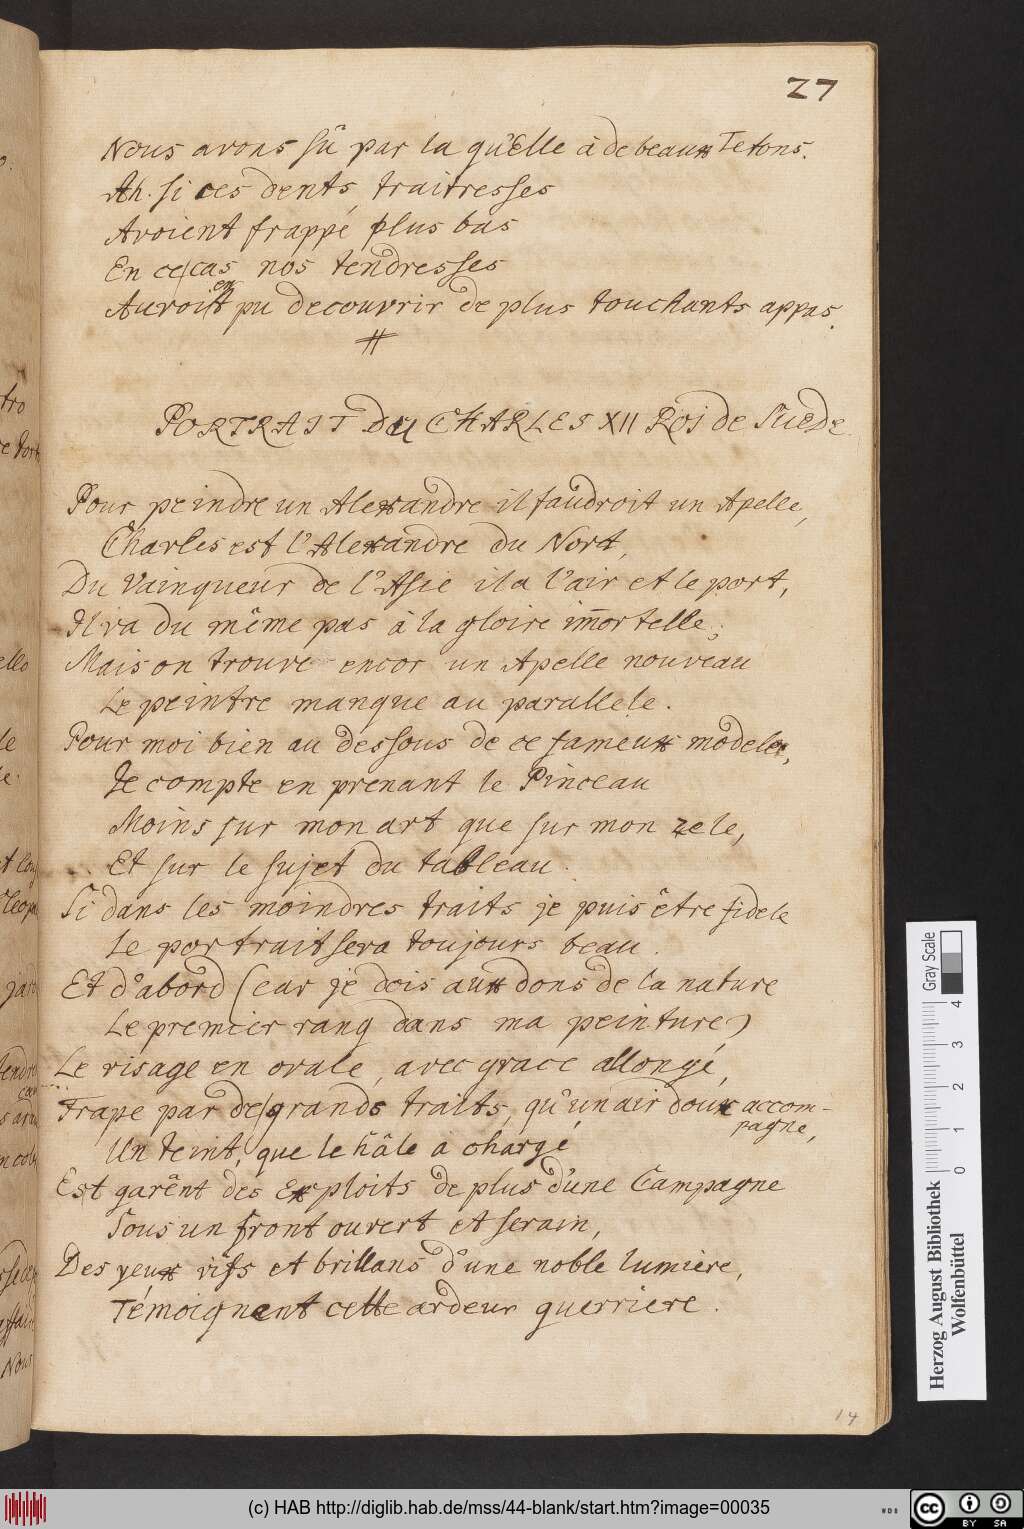 27
Nous avons sû par la qu'Elle à de beaux Tetons.
Ah. si ces dents, traitresses
Avoient frappé plus bas
En ce cas nos tendresses
en
Auroit pu decouvrir de plus touchants appas.
PORTRAIT DU CHARLES XII Roi de Suede
Pour peindre un Alexandre il faudroit un Apelle,
Charles est l'Alexandre du Nord,
Du Vainqueur de l'Asie il a l'air et le port,
Il va du même pas à la gloire im̄ortelle;
Mais on trouve encor un Apelle nouveau
Le peintre manque au parallele.
Pour moi bien au dessous de ce fameux modele,
Je compte en prenant le Pinceau
Moins sur mon art que sur mon zele,
Et sur le sujet du tableau.
Si dans les moindres traits je puis être fidele
Le portrait sera toujours beau.
Et d'abord (car je dois aux dons de la nature
Le premier rang dans ma peinture)
Le visage en ovale, avec grace allongé,
Frape par de grands traits, qu'un air doux accom-
pagne,
Un teint, que le hâle a chargé
Est garênt des Exploits de plus d'une Campagne
Sous un front ouvert et serain,
Des yeux vifs et brillans d'une noble lumiere,
Témoignent cette ardeur guerriere.
14
tro
ello
le
Nous
Gray Scale
0 1 2 3 4
Herzog August Bibliothek
Wolfenbüttel
(c) HAB http://diglib.hab.de/mss/44-blank/start.htm?image=00035
WDB
cc BY SA